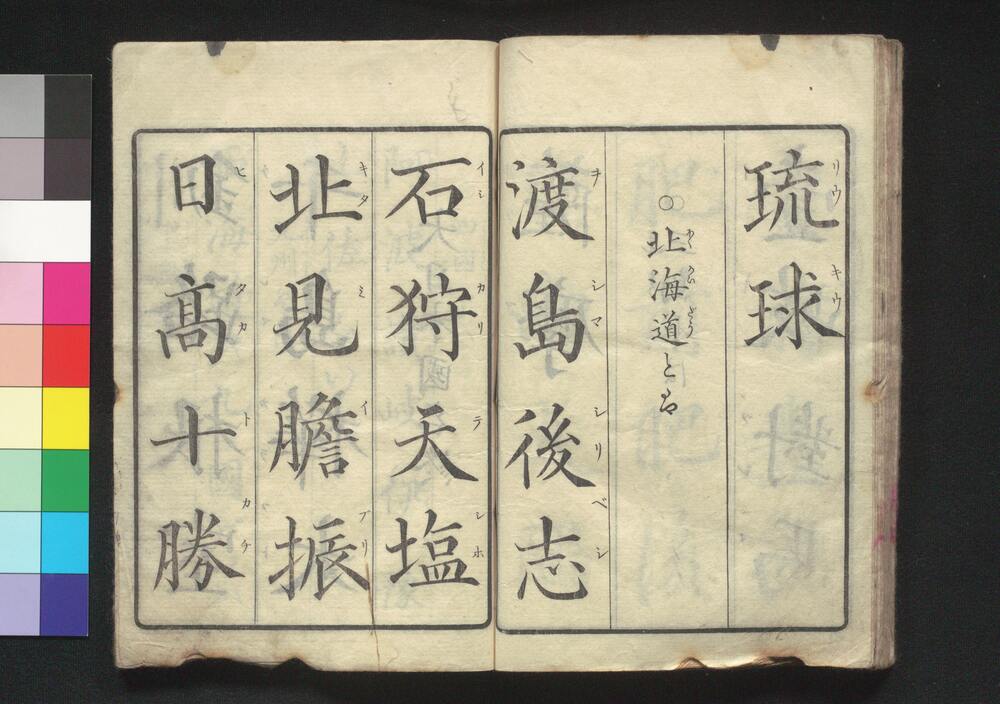 琉球
リウキウ
○北海道とハ
ほくかいどう
渡島後志
ヲシマシリベシ
石狩天塩
イシカリテシホ
北見膽振
キタミイブリ
日髙十勝
ヒタカトカチ